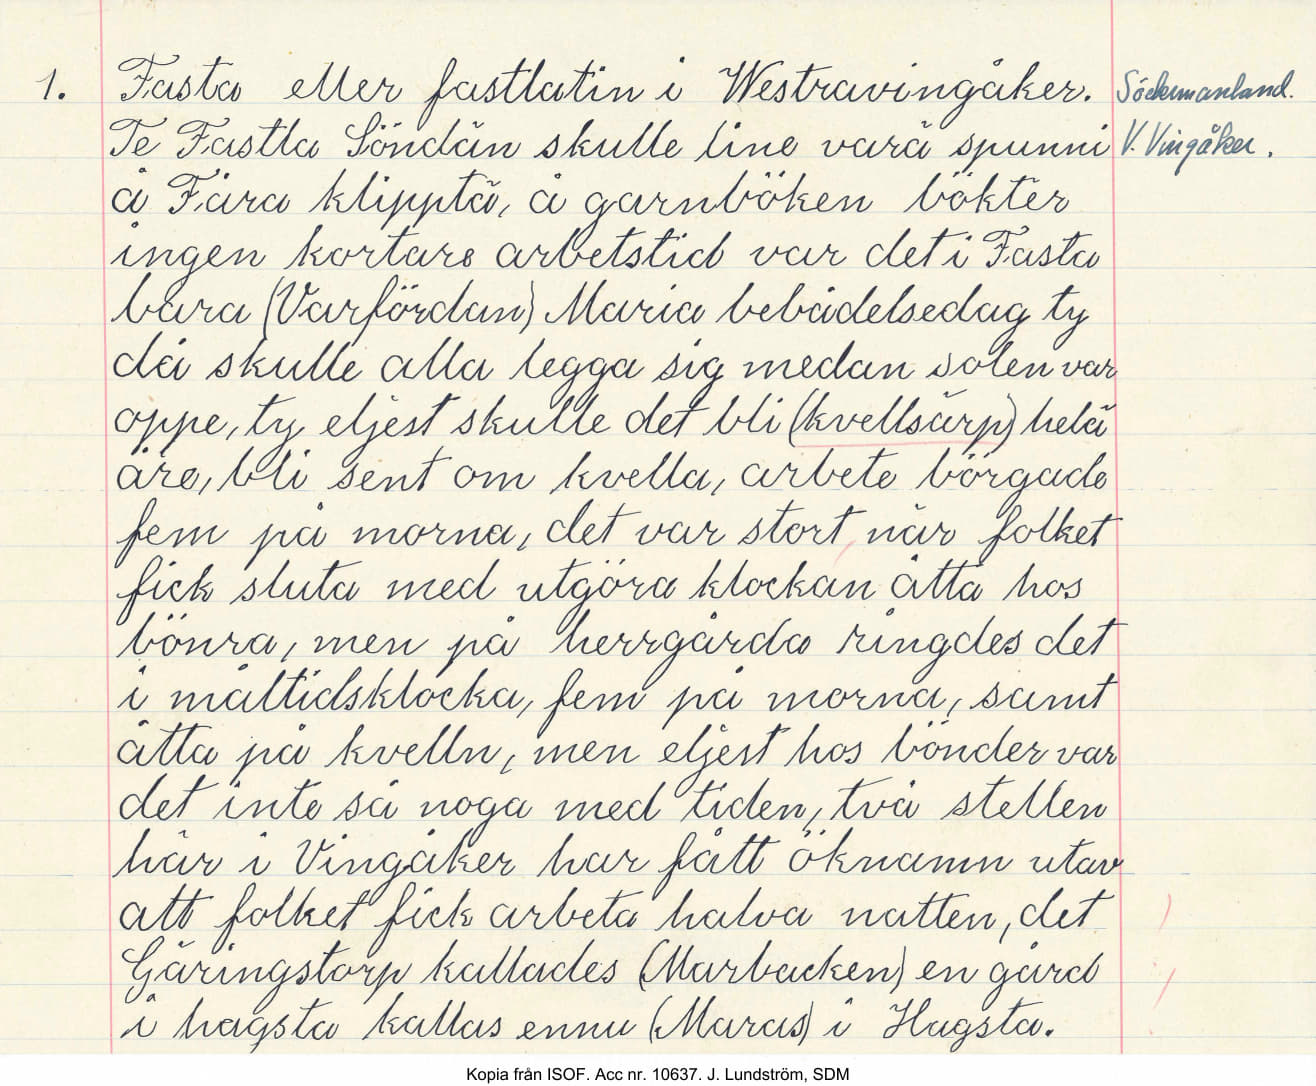 1. Fasta eller fastlatin i Westravingåker. Södermanland.
Te Fastla Söndän skulle line varä spunni V. Vingåker.
å Fåra klipptä, å garnböken bökter
ingen kortare arbetstid var det i Fasta
bara (Varfördan) Maria bebådelsedag ty
då skulle alla legga sig medan solen var
oppe, ty eljest skulle det bli (kvellsärp) helä
åre, bli sent om kvella, arbete börgade
fem på morna, det var stort när folket
fick sluta med utgöra klockan åtta hos
bönra, men på herrgårda ringdes det
i måltidsklocka, fem på morna, samt
åtta på kvelln, men eljest hos bönder var
det inte så noga med tiden, två stellen
här i Vingåker har fått öknamn utav
att folket fick arbeta halva natten, det
Gäringstorp kallades (Marbacken) en gård
i hagsta kallas ennu (Maras) i Hagsta.
Kopia från ISOF. Acc nr. 10637. J. Lundström, SDM